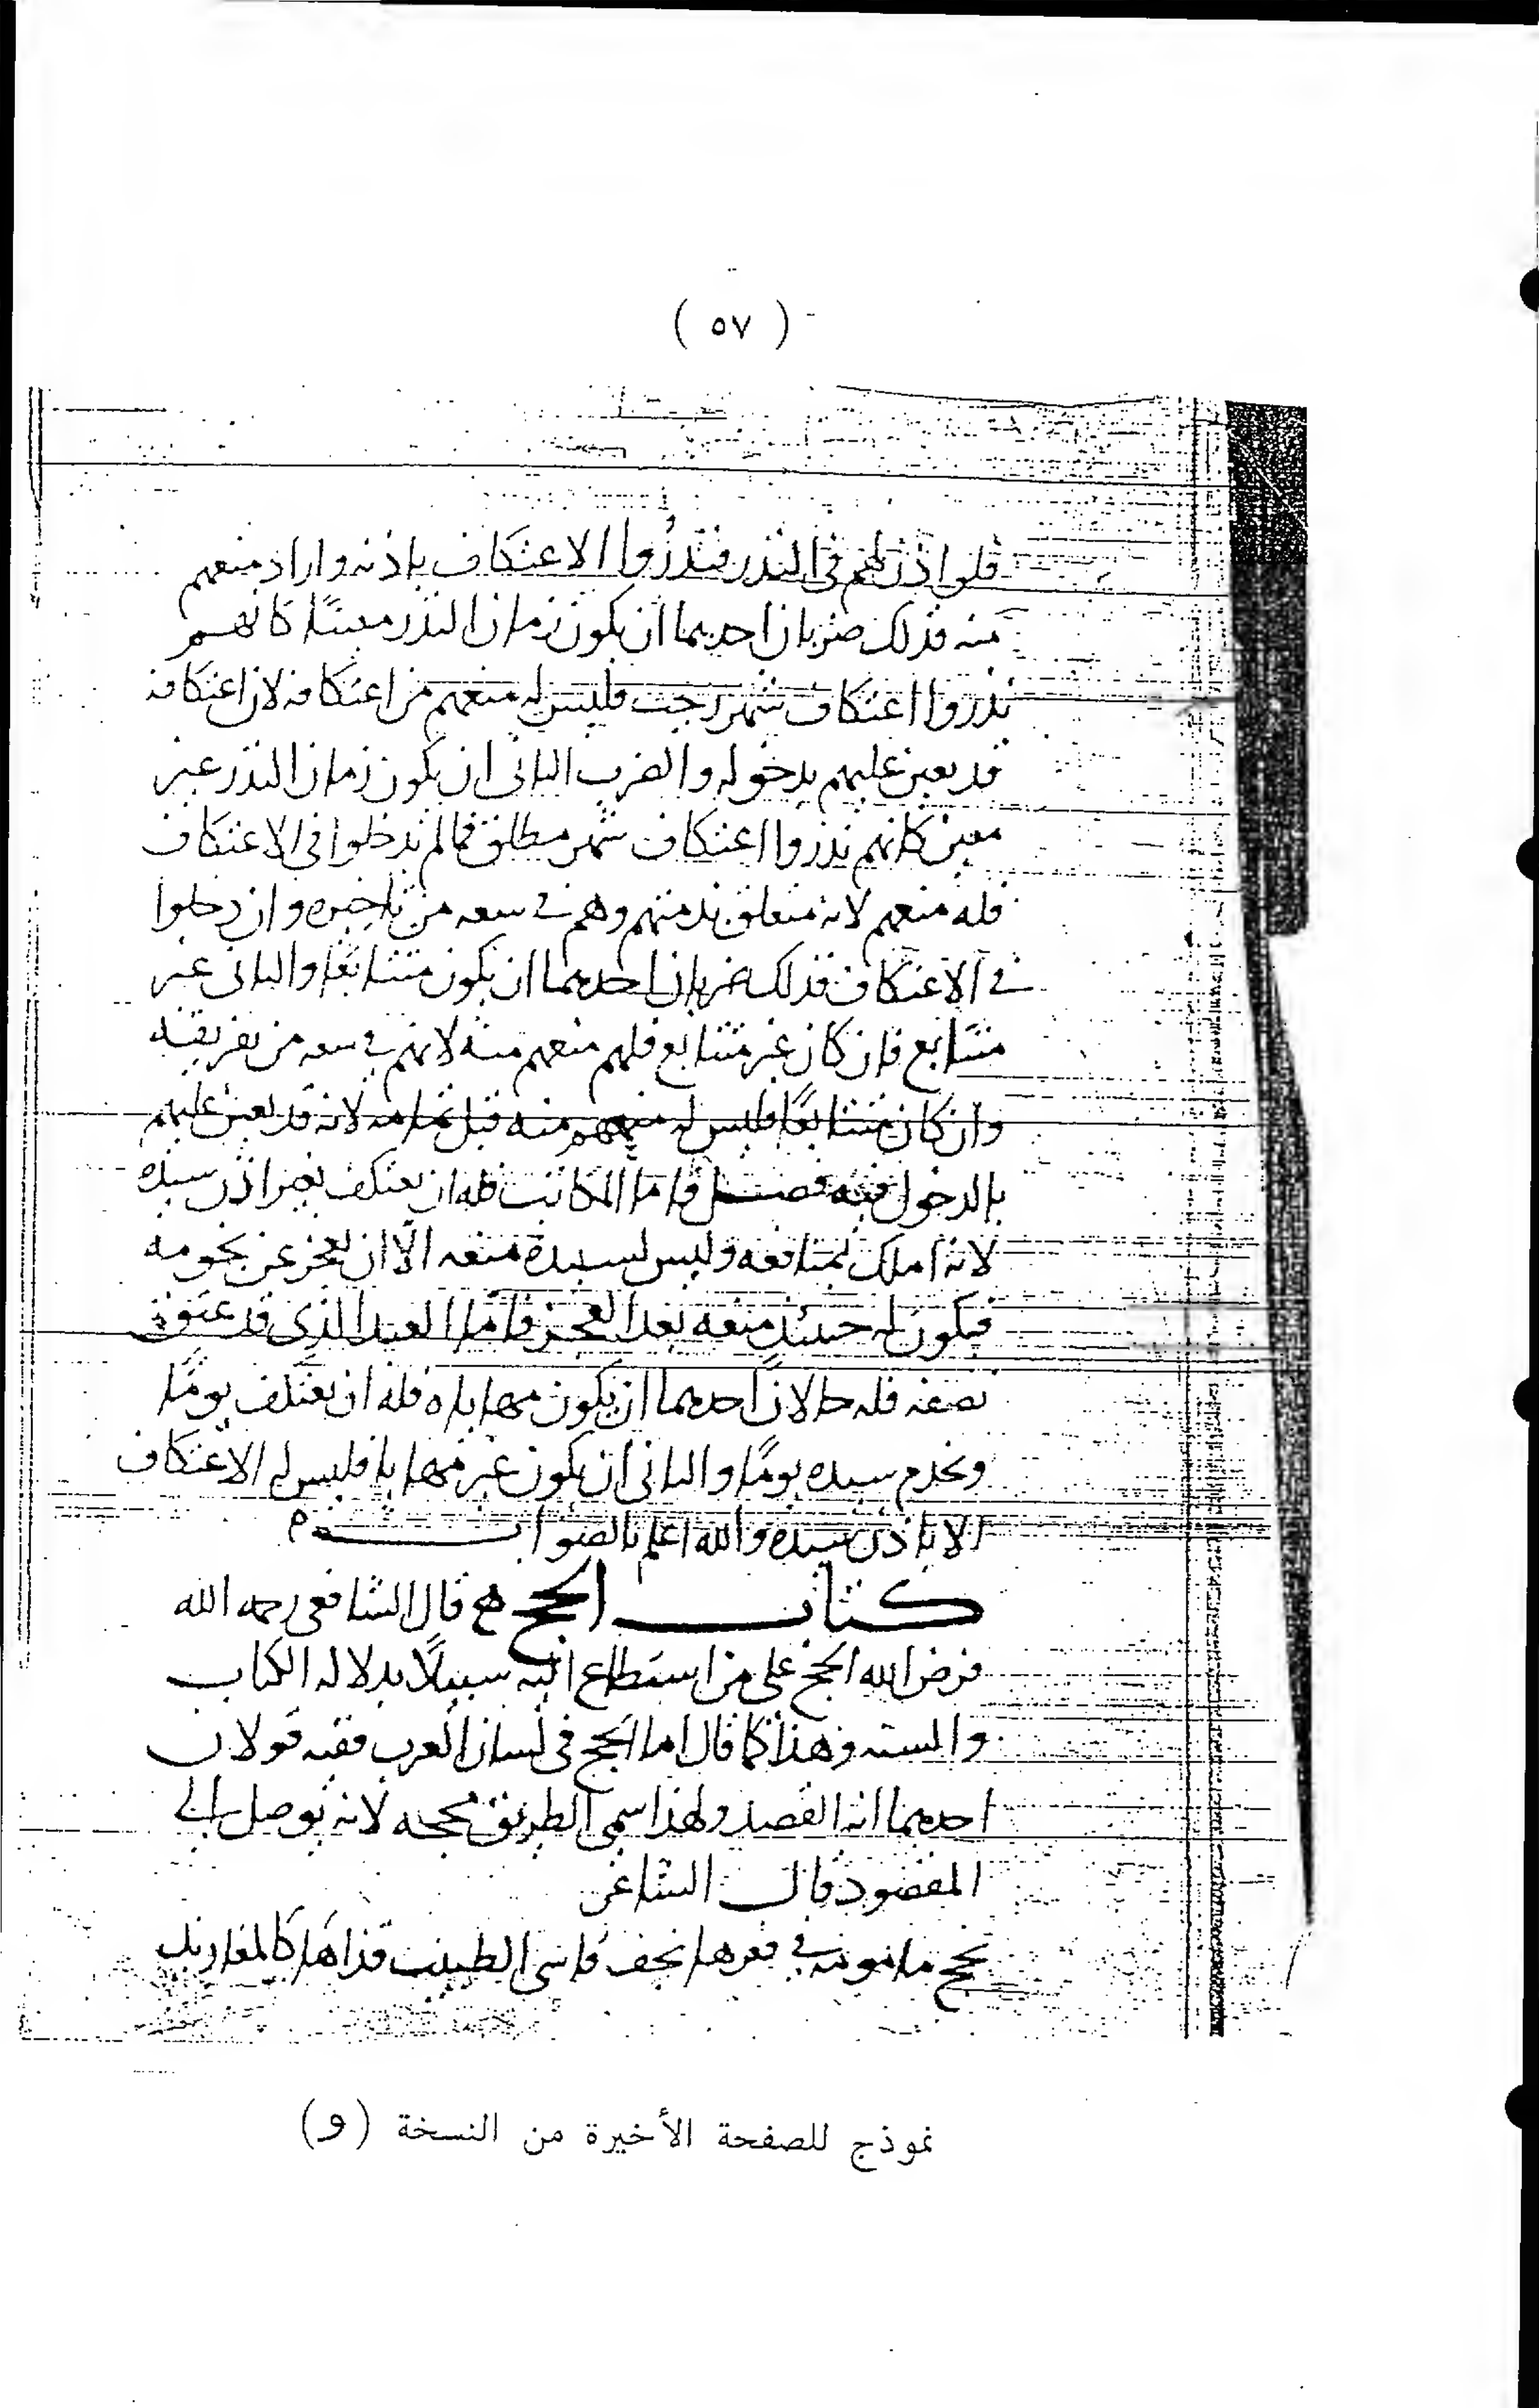 ( ٥٧ )
فلو اذن لهم في النذر فنذروا الاعتكاف باذنه واراد منعهم
منه فذلك ضربان احدهما ان يكون زمان النذر معينًا كانهم
نذروا اعتكاف شهر رجب فليس له منعهم من اعتكافه لان اعتكافه
قد تعين عليهم بدخوله والضرب الثاني ان يكون زمان النذر غير
معين كانهم نذروا اعتكاف شهر مطلق فما لم يدخلوا في الاعتكاف
فله منعهم لانه متعلق بذمتهم وهم في سعه من تاخيره وان دخلوا
في الاعتكاف فذلك ضربان احدهما ان يكون متتابعًا والثاني غير
متتابع فان كان غير متتابع فلهم منعهم منه لانهم في سعه من تفريقه
وان كان متتابعًا فليس له منعهم منه قبل تمامه لانه قد تعين عليهم
بالدخول فيه فصل فاما المكاتب فله ان يعتكف بغير اذن سيده
لانه املك لمنافعه وليس لسيده منعه الا ان يعجز عن نجومه
فيكون له حينئذ منعه بعد العجز فاما العبد الذي قد عتق
نصفه فله حالان احدهما ان يكون مهاياه فله ان يعتكف يومًا
ويخدم سيده يومًا والثاني ان يكون غير مهايا فليس له الاعتكاف
الا باذن سيده والله اعلم بالصواب
كتاب الحج قال الشافعي رحمه الله
فرض الله الحج على من استطاع اليه سبيلًا بدلاله الكتاب
والسنه وهذا كما قال اما الحج في لسان العرب ففيه قولان
احدهما انه القصد ولهذا سمي الطريق محجه لانه يوصل الى
المقصود قال الشاعر
يحج مامومة في قعرها لجف فاست الطبيب قذاها كالمغاريد
نموذج للصفحة الأخيرة من النسخة (و)